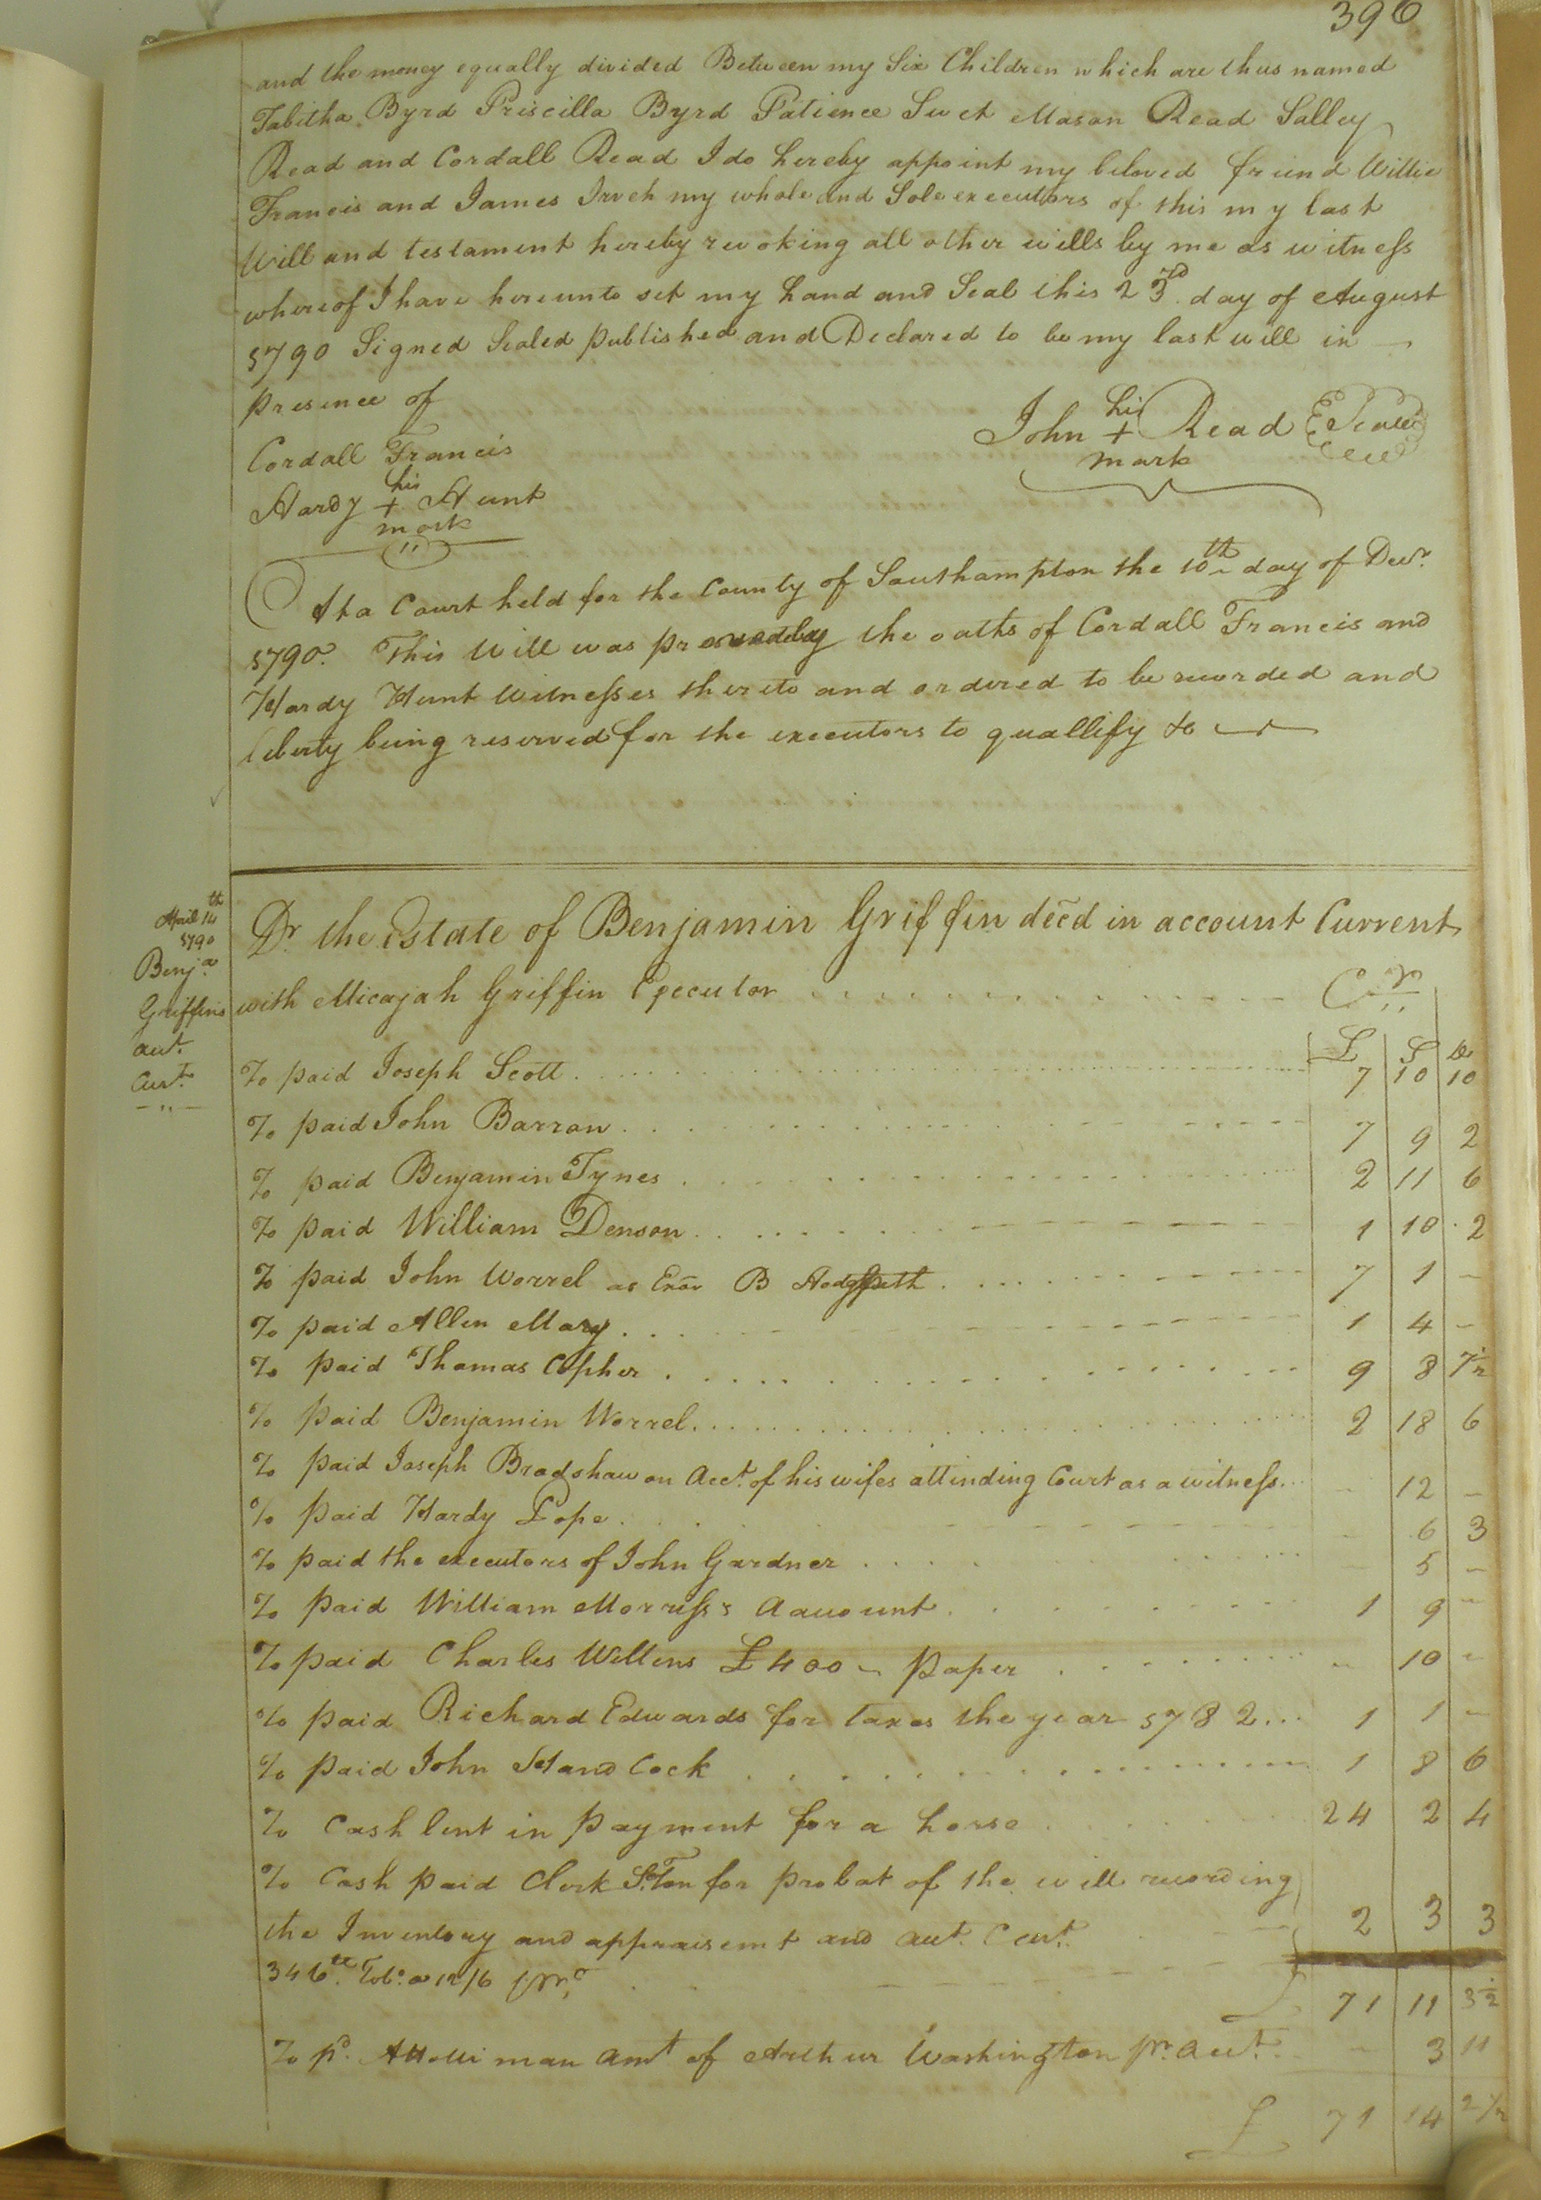 396
and the money equally divided Between my Six Children which are thus named
Tabitha Byrd Priscilla Byrd Patience Suet Mason Read Salley
Read and Cordall Read I do hereby appoint my beloved friend Willie
Francis and James my whole and Sole executors of this my last
Will and testament hereby revoking all other wills by me as witness
whereof I have hereunto set my hand and Seal this 23rd day of August
1790 Signed Sealed published and Declared to be my last will in
presence of
Cordall Francis
Hardy his + mark Hunt
John his + mark Read Seal
At a Court held for the County of Southampton the 10th day of Decr.
1790. This Will was proved by the oaths of Cordall Francis and
Hardy Hunt Witnesses thereto and ordered to be recorded and
liberty being reserved for the executors to quallify &c
April 14th
1790
Benja.
Griffins
acct.
Curt.
Dr the Estate of Benjamin Griffin decd in account Current
with Micajah Griffin Executor Cr
£ S D
To paid Joseph Scott 7 10 10
To paid John Barron 7 9 2
To paid Benjamin Tynes 2 11 6
To paid William Denson 1 10 2
To paid John Worrel as Exor B 7 1 -
To paid Allen Mary 1 4 -
To paid Thomas Copher 9 8 7½
To paid Benjamin Worrel 2 18 6
To paid Joseph Bradshaw on Acct. of his wifes attending Court as a witness - 12 -
To paid Hardy Pope - 6 3
To paid the executors of John Gardner 5 -
To paid William Morriss's Aauount 1 9 -
To paid Charles Wellens £400 - paper - 10 -
To paid Richard Edwards for taxes the year 1782 1 1 -
To paid John Hand Cock 1 8 6
To Cash lent in payment for a horse 24 2 4
To Cash paid Clerk S.Ton for probat of the will recording
the Inventory and appraisemt and acct. Curt. 2 3 3
346lb. Tobo. a 12/6
71 11 3½
To pd. man amt of Arthur Washington pr. acct. - 3 11
£ 71 14 2½